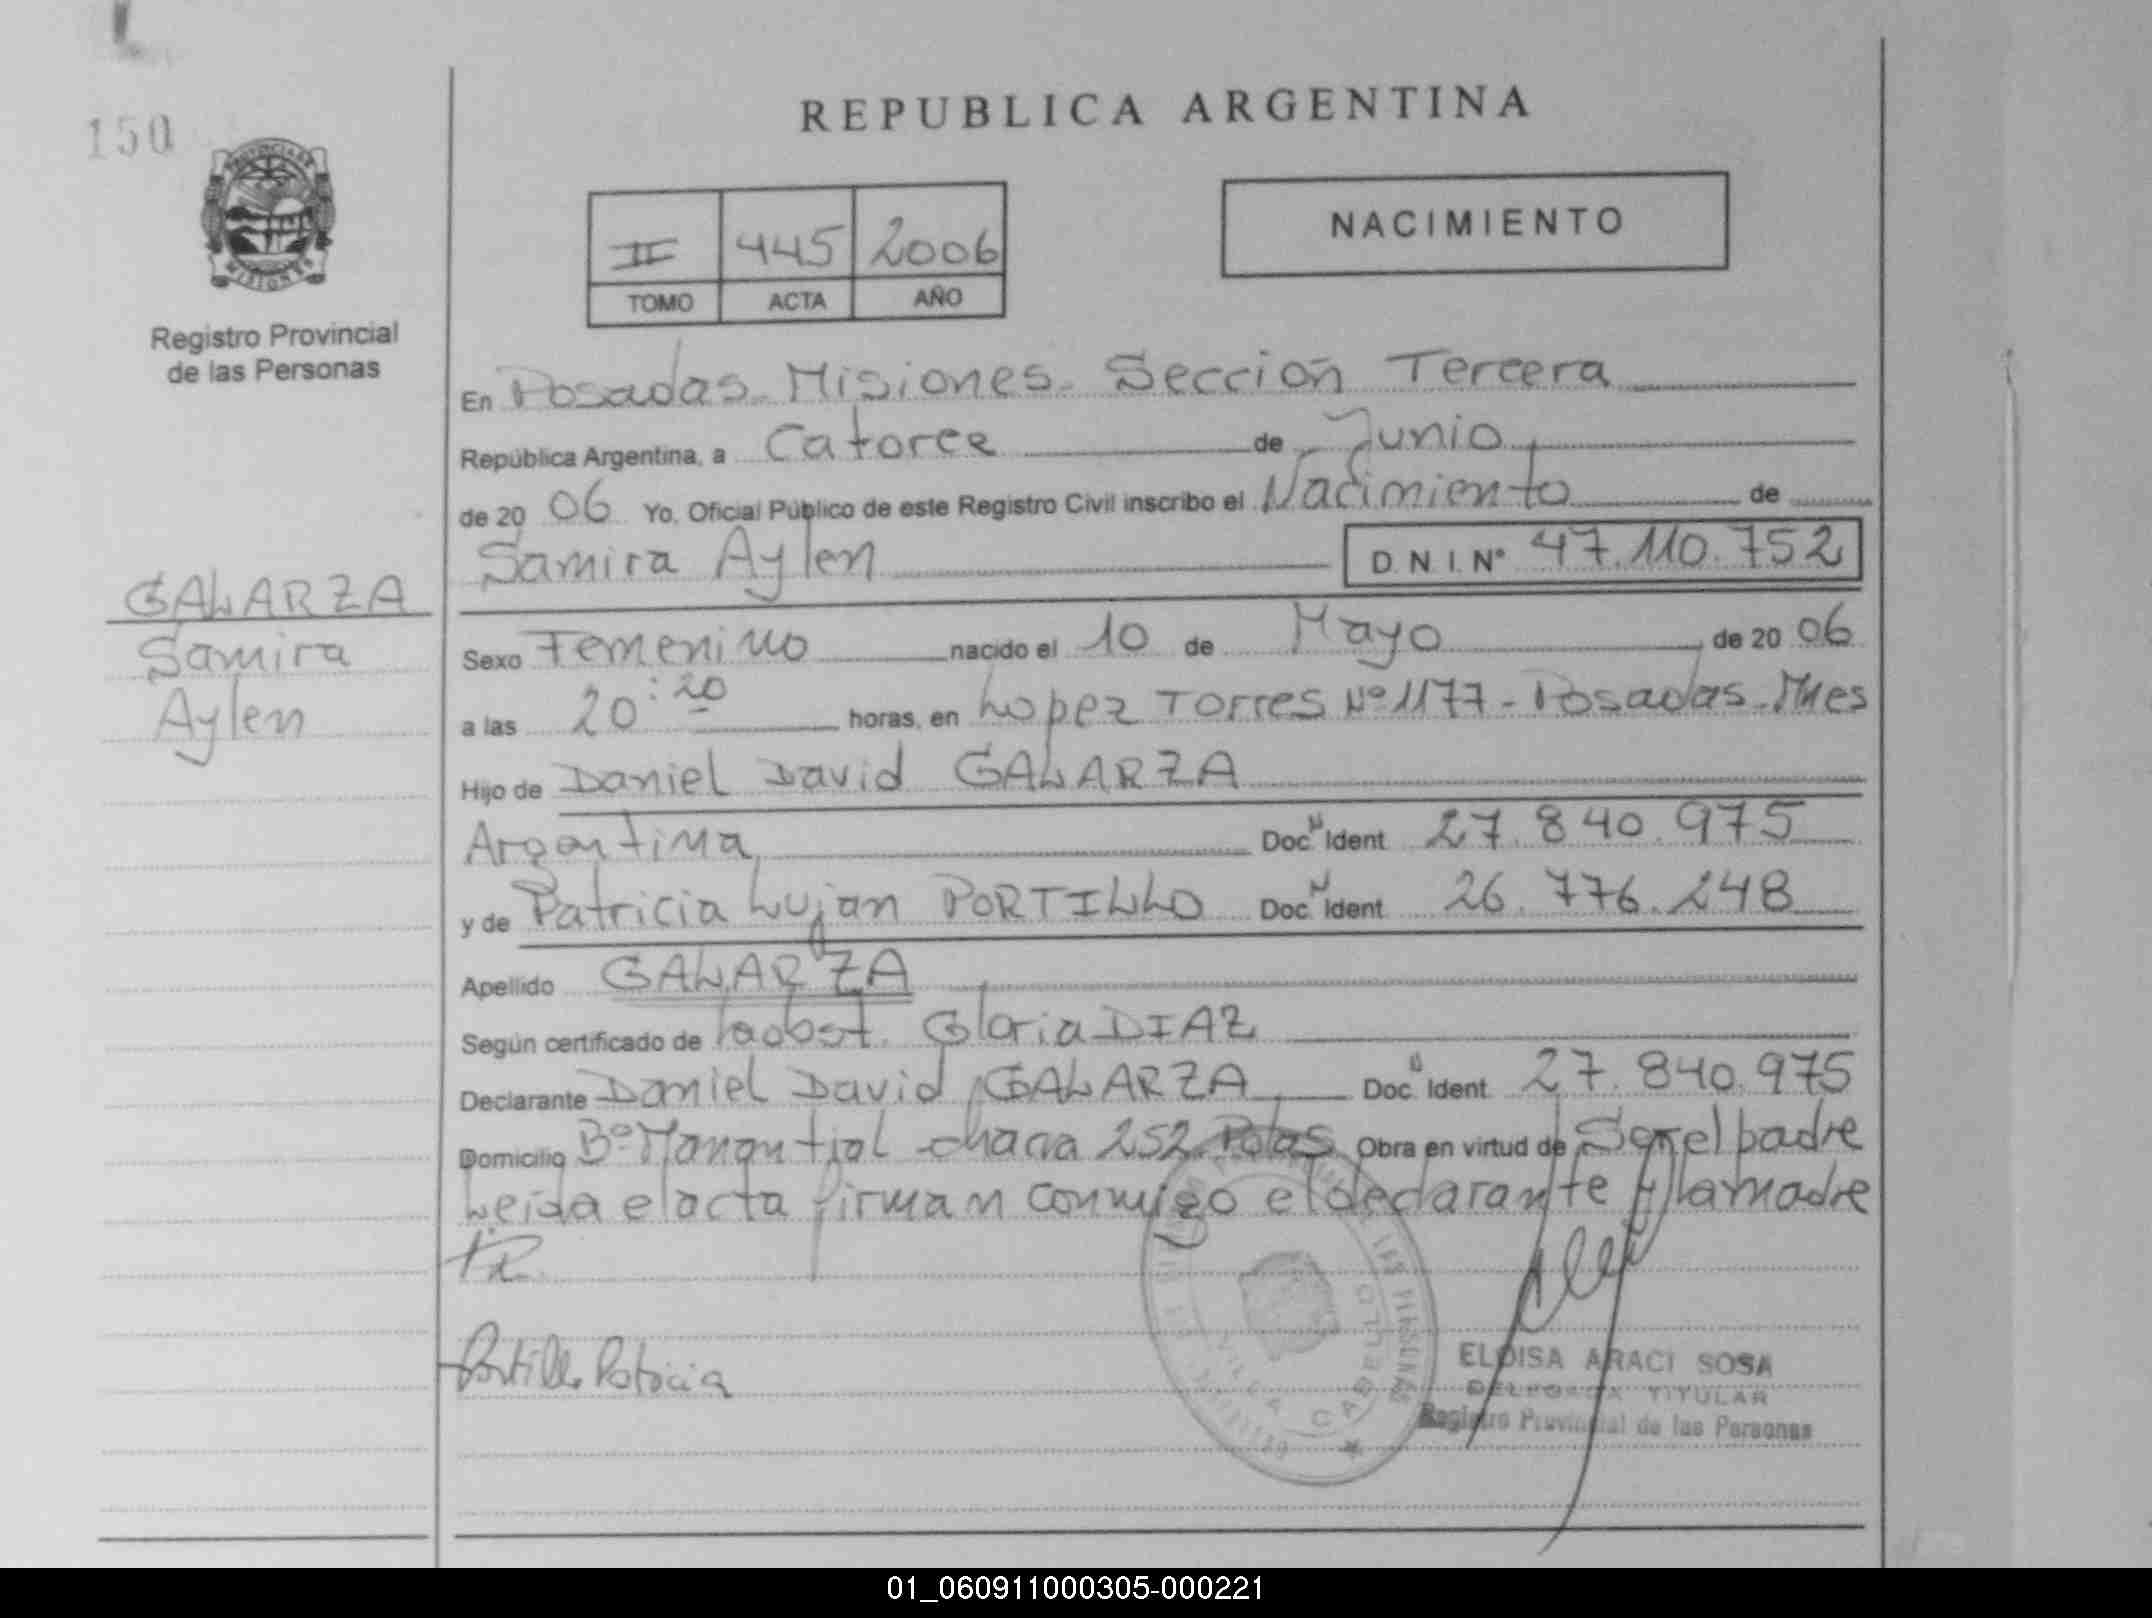 150
REPUBLICA ARGENTINA
PROVINCIA DE
MISIONES
Registro Provincial
de las Personas
II 445 2006
TOMO ACTA AÑO
NACIMIENTO
En Posadas - Misiones - Sección Tercera
República Argentina, a Catorce de Junio
de 20 06 Yo, Oficial Público de este Registro Civil inscribo el Nacimiento de
Samira Aylen D.N.I. Nº 47.110.752
GALARZA
Samira
Aylen
Sexo Femenino nacido el 10 de Mayo de 20 06
a las 20:20 horas, en Lopez Torres Nº 1177 - Posadas - Mnes
Hijo de Daniel David GALARZA
Argentina Doc. Ident 27.840.975
y de Patricia Lujan PORTILLO Doc. Ident 26.776.248
Apellido GALARZA
Según certificado de la obst. Gloria DIAZ
Declarante Daniel David GALARZA Doc. Ident 27.840.975
Domicilio Bº Manantial chacra 252 Pdas Obra en virtud de Ser el padre
Leída el acta firman conmigo el declarante y la madre
Portillo Patricia
VILLA CABELLO
ELOISA ARACI SOSA
DELEGADA TITULAR
Registro Provincial de las Personas
01_060911000305-000221